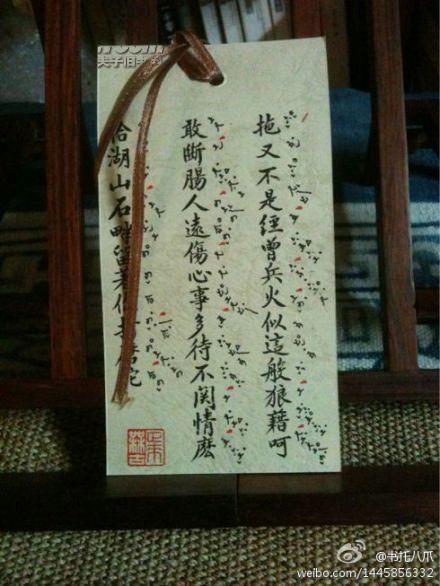 拖又不是經曾兵火似這般狼藉呵
敢斷腸人遠傷心事多待不関情麽
恰湖山石畔留着陀
@书托八爪
weibo.com/1445856332